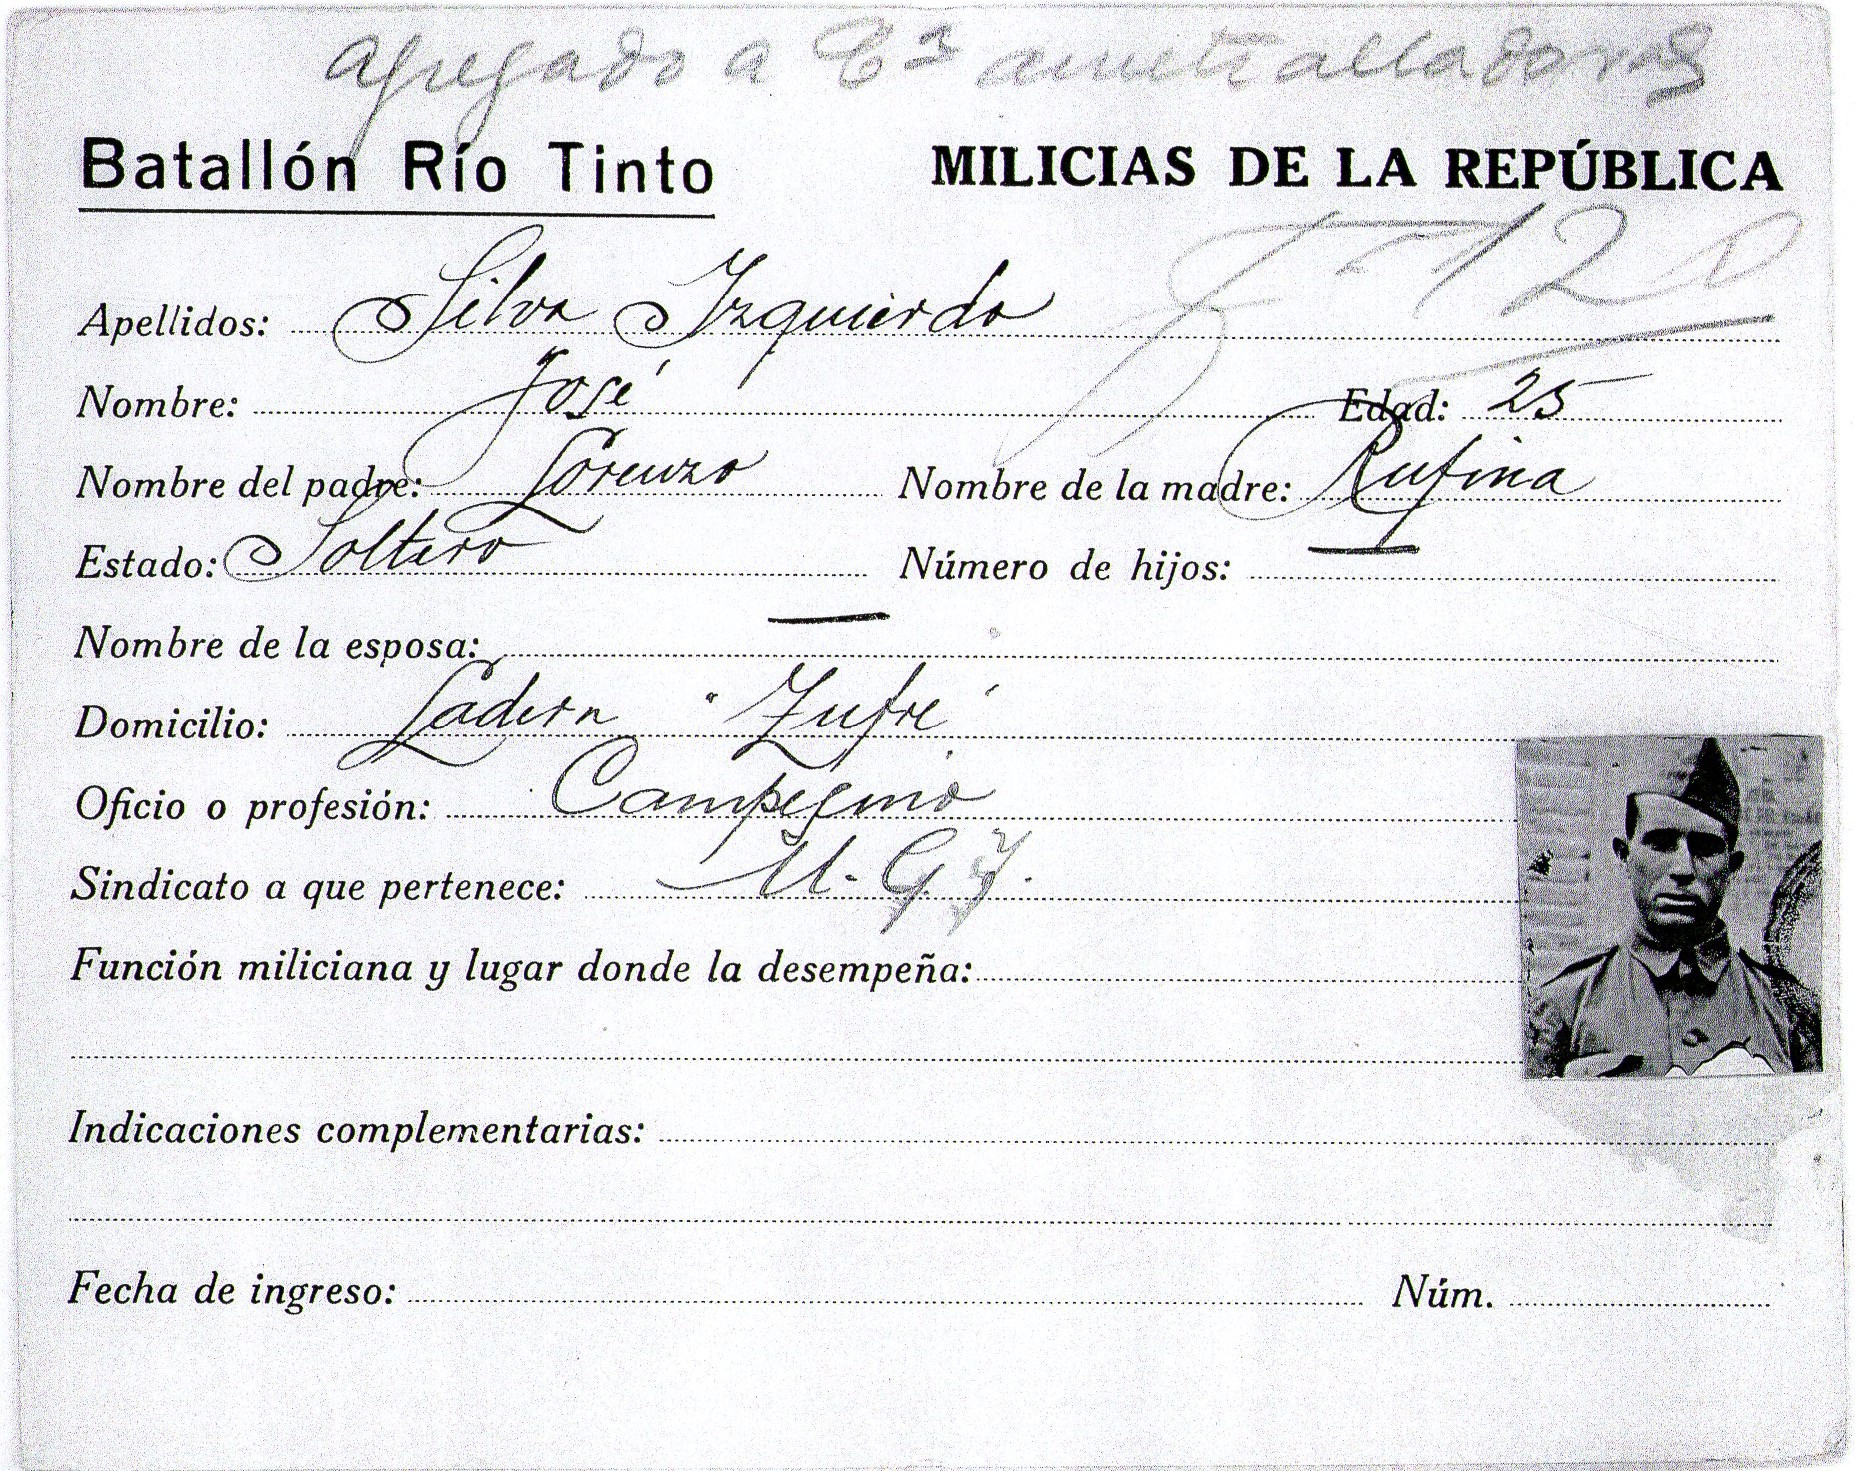 agregado a Cª ametralladoras
Batallón Río Tinto MILICIAS DE LA REPÚBLICA
120
Apellidos: Silva Izquierdo
Nombre: José Edad: 25
Nombre del padre: Lorenzo Nombre de la madre: Rufina
Estado: Soltero Número de hijos: —
Nombre de la esposa: —
Domicilio: Ladera "Zufre"
Oficio o profesión: Campesino
Sindicato a que pertenece: U.G.T.
Función miliciana y lugar donde la desempeña:
Indicaciones complementarias:
Fecha de ingreso: Núm.